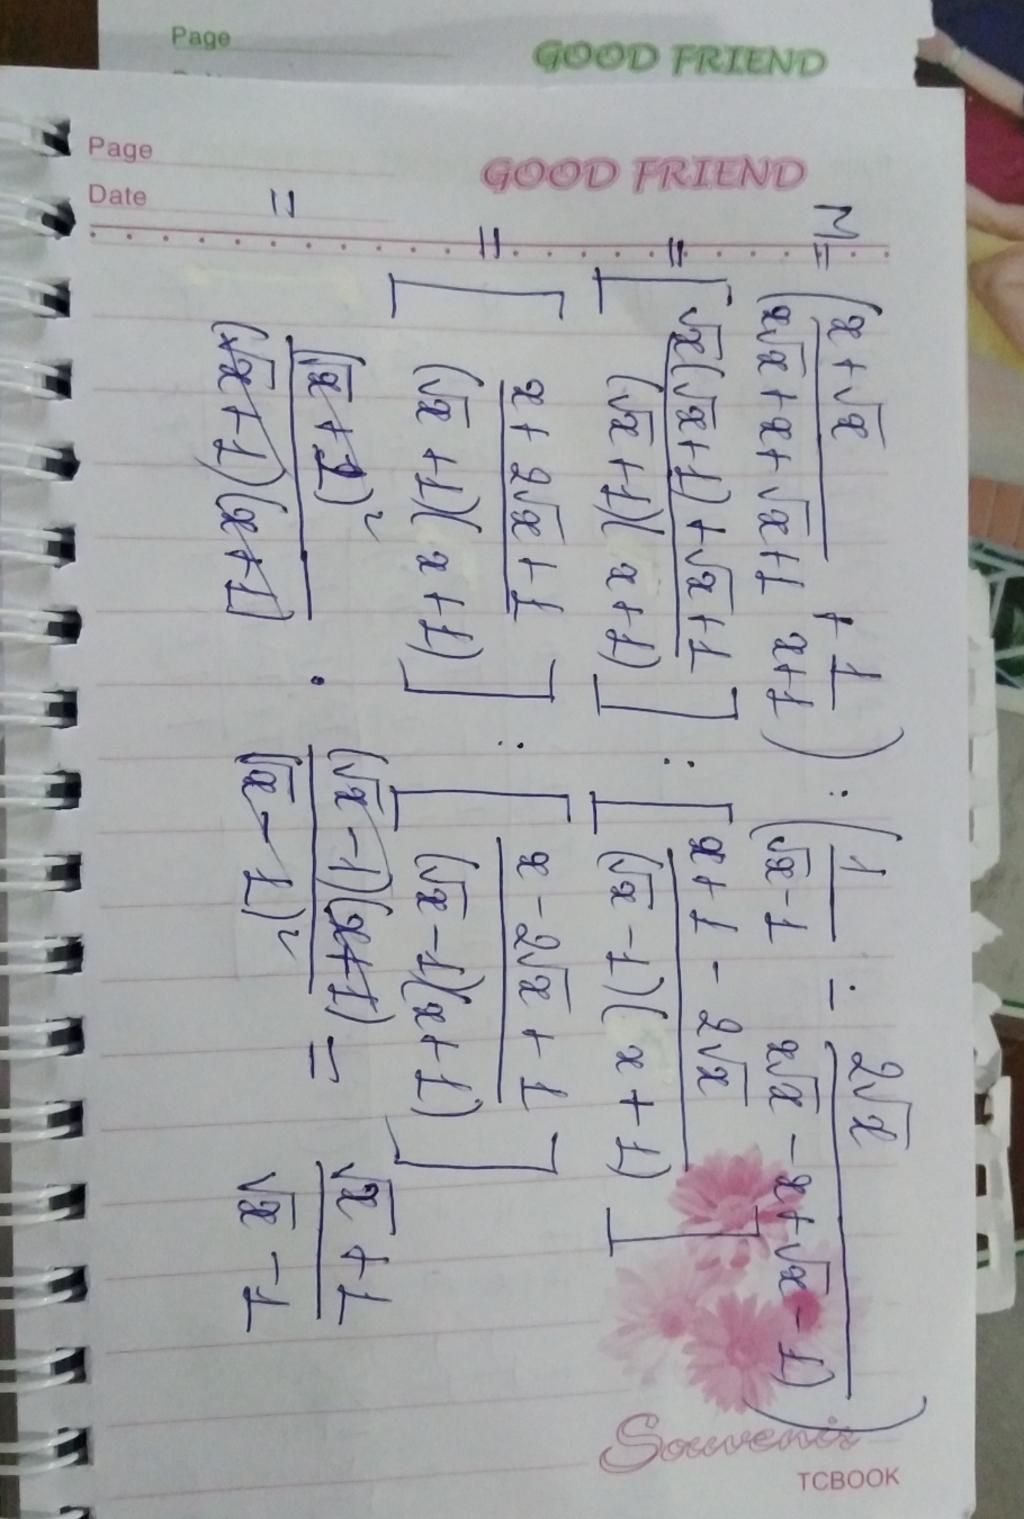 Page
GOOD FRIEND
Page
GOOD FRIEND
Date
M = ( (x+√x)/(x√x+x+√x+1) + 1/(x+1) ) : ( 1/(√x-1) - 2√x/(x√x-x+√x-1) )
= [ (√x(√x+1)+√x+1)/((√x+1)(x+1)) ] : [ (x+1-2√x)/((√x-1)(x+1)) ]
= [ (x+2√x+1)/((√x+1)(x+1)) ] : [ (x-2√x+1)/((√x-1)(x+1)) ]
= (√x+1)²/((√x+1)(x+1)) · (√x-1)(x+1)/(√x-1)² = (√x+1)/(√x-1)
Souvenir
TCBOOK